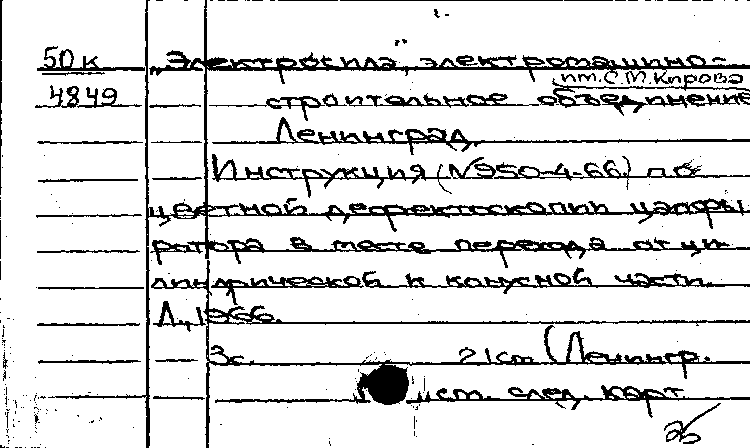 50к „Электросила", электромашино-
им. С.М. Кирова
4849 строительное объединение
Ленинград.
Инструкция (№950-4-66) по
цветной дефектоскопии цапфы
ротора в месте перехода от ци-
линдрической к конусной части.
Л., 1966.
3с. 21см (Ленингр.
см. след. карт